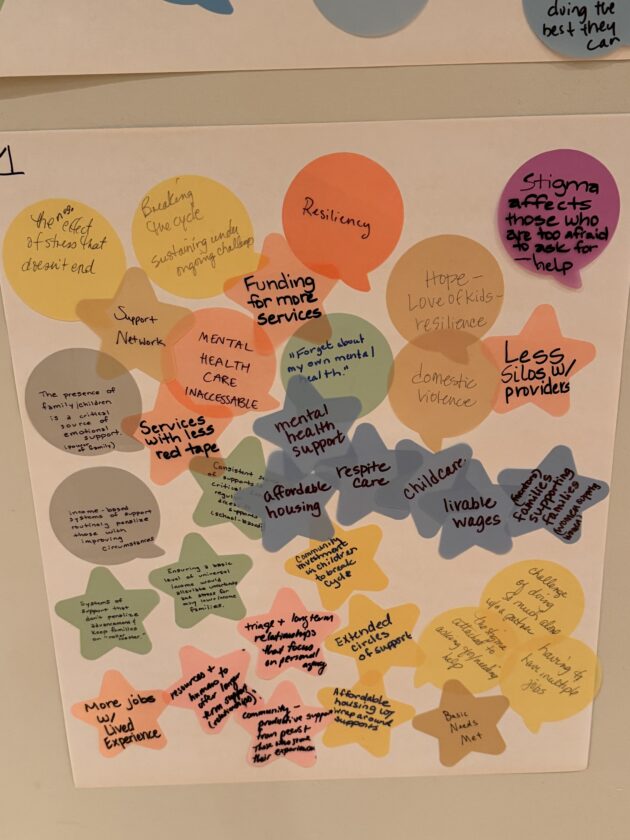 doing the
best they
can
1
the neg. effect
of stress that
doesn't end
Breaking
the cycle
sustaining under
ongoing challenges
Resiliency
Stigma
affects
those who
are too afraid
to ask for
help
Funding
for more
services
Hope -
Love of kids -
resilience
Support
Network
MENTAL
HEALTH
CARE
INACCESSABLE
"Forget about
my own mental
health."
domestic
violence
Less
Silos w/
providers
The presence of
family/children
is a critical
source of
emotional
support.
(power of family)
Services
with less
red tape
mental
health
support
Consistent
of supports
critical
supports
(school-based)
affordable
housing
respite
care
childcare
livable
wages
families
supporting
families
income-based
systems of support
routinely penalize
those with
improving
circumstances
Community
investment
in children
to break
cycle
Systems of
support that
don't penalize
advancement &
keep families
on "roller coaster"
Ensuring a basic
level of universal
income would
alleviate uncertainty
and stress for
many lower-income
families.
triage + long term
relationships
that focus
on personal
agency
Extended
circles
of support
challenge
of doing
so much alone
w/o a partner
The stigma
attached to
asking for/needing
help
having to
have multiple
jobs
More jobs
w/
Lived
Experience
resources +
humans to
offer longer
term support
(relationships)
community -
productive support
from peers
Those who share
their experience
Affordable
housing w/
wrap around
supports
Basic
Needs
Met